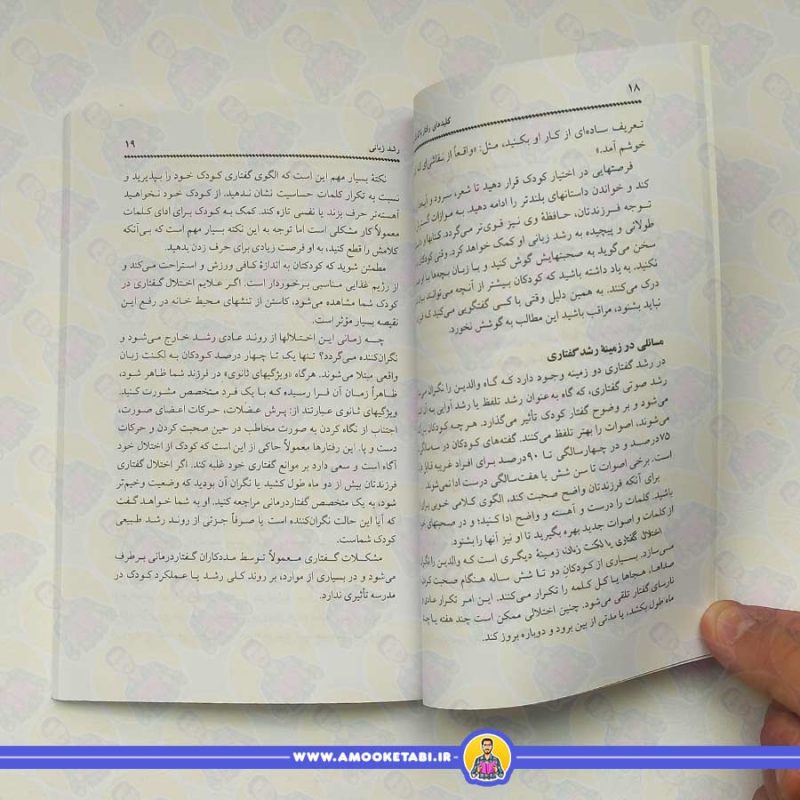 ۱۸
کلیدهای رفتار با
تعریف ساده‌ای از کار او بکنید، مثل: «واقعاً از نقاشی‌ای که
خوشم آمد.»
فرصتهایی در اختیار کودک قرار دهید تا شعر، سرود و
کند و خواندن داستانهای بلندتر را ادامه دهید. به موازات
توجه فرزندتان، حافظهٔ وی نیز قوی‌تر می‌گردد. کتابهای
طولانی و پیچیده به رشد زبانی او کمک خواهد کرد. وقتی کودکتان
سخن می‌گوید به صحبتهایش گوش کنید و با زبان بچه‌ها با او
نکنید. به یاد داشته باشید که کودکان بیشتر از آنچه می‌توانند
درک می‌کنند. به همین دلیل وقتی با کسی گفتگویی می‌کنید که
نباید بشنود، مراقب باشید این مطالب به گوشش نخورد.
مسائلی در زمینهٔ رشد گفتاری
در رشد گفتاری دو زمینه وجود دارد که گاه والدین را نگران
رشد صوتی گفتاری، که گاه به عنوان رشد تلفظ یا رشد آوایی به آن
می‌شود و بر وضوح گفتار کودک تأثیر می‌گذارد. هرچه کودکان
می‌شوند، اصوات را بهتر تلفظ می‌کنند. گفته‌های کودکان در
۷۵درصد و در چهارسالگی تا ۹۰درصد برای افراد غریبه قابل
است. برخی اصوات تا سن شش یا هفت‌سالگی درست ادا نمی‌شوند
برای آنکه فرزندتان واضح صحبت کند، الگوی کلامی خوبی برای
باشید. کلمات را درست و آهسته و واضح ادا کنید؛ و در صحبتهای
از کلمات و اصوات جدید بهره بگیرید تا او نیز آنها را بشنود.
اختلال گفتاری یا لکنت زبان زمینهٔ دیگری است که والدین را
می‌سازد. بسیاری از کودکان دو تا شش ساله هنگام صحبت
صداها، هجاها یا کل کلمه را تکرار می‌کنند. این امر تکرار عادی
نارسای گفتار تلقی می‌شود. چنین اختلالی ممکن است چند هفته یا چند
ماه طول بکشد، یا مدتی از بین برود و دوباره بروز کند.
رشد زبانی
۱۹
نکتهٔ بسیار مهم این است که الگوی گفتاری کودک خود را بپذیرید و
نسبت به تکرار کلمات حساسیت نشان ندهید. از کودک خود نخواهید
آهسته‌تر حرف بزند یا نفسی تازه کند. کمک به کودک برای ادای کلمات
معمولاً کار مشکلی است اما توجه به این نکته بسیار مهم است که بی‌آنکه
کلامش را قطع کنید، به او فرصت زیادی برای حرف زدن بدهید.
مطمئن شوید که کودکتان به اندازهٔ کافی ورزش و استراحت می‌کند و
از رژیم غذایی مناسبی برخوردار است. اگر علایم اختلال گفتاری در
کودک شما مشاهده می‌شود، کاستن از تنشهای محیط خانه در رفع این
نقیصه بسیار مؤثر است.
چه زمانی این اختلالها از روند عادی رشد خارج می‌شود و
نگران‌کننده می‌گردد؟ تنها یک تا چهار درصد کودکان به لکنت زبان
واقعی مبتلا می‌شوند. هرگاه «ویژگیهای ثانوی» در فرزند شما ظاهر شود،
ظاهراً زمان آن فرا رسیده که با یک فرد متخصص مشورت کنید.
ویژگیهای ثانوی عبارتند از: پرش عضلات، حرکات اعضای صورت،
اجتناب از نگاه کردن به صورت مخاطب در حین صحبت کردن و حرکات
دست و پا. این رفتارها معمولاً حاکی از این است که کودک از اختلال خود
آگاه است و سعی دارد بر موانع گفتاری خود غلبه کند. اگر اختلال گفتاری
فرزندتان بیش از دو ماه طول کشید یا نگران آن بودید که وضعیت وخیم‌تر
شود، به یک متخصص گفتاردرمانی مراجعه کنید. او به شما خواهد گفت
که آیا این حالت نگران‌کننده است یا صرفاً جزئی از روند رشد طبیعی
کودک شماست.
مشکلات گفتاری معمولاً توسط مددکاران گفتاردرمانی برطرف
می‌شود و در بسیاری از موارد، بر روند کلی رشد یا عملکرد کودک در
مدرسه تأثیری ندارد.
WWW.AMOOKETABI.IR